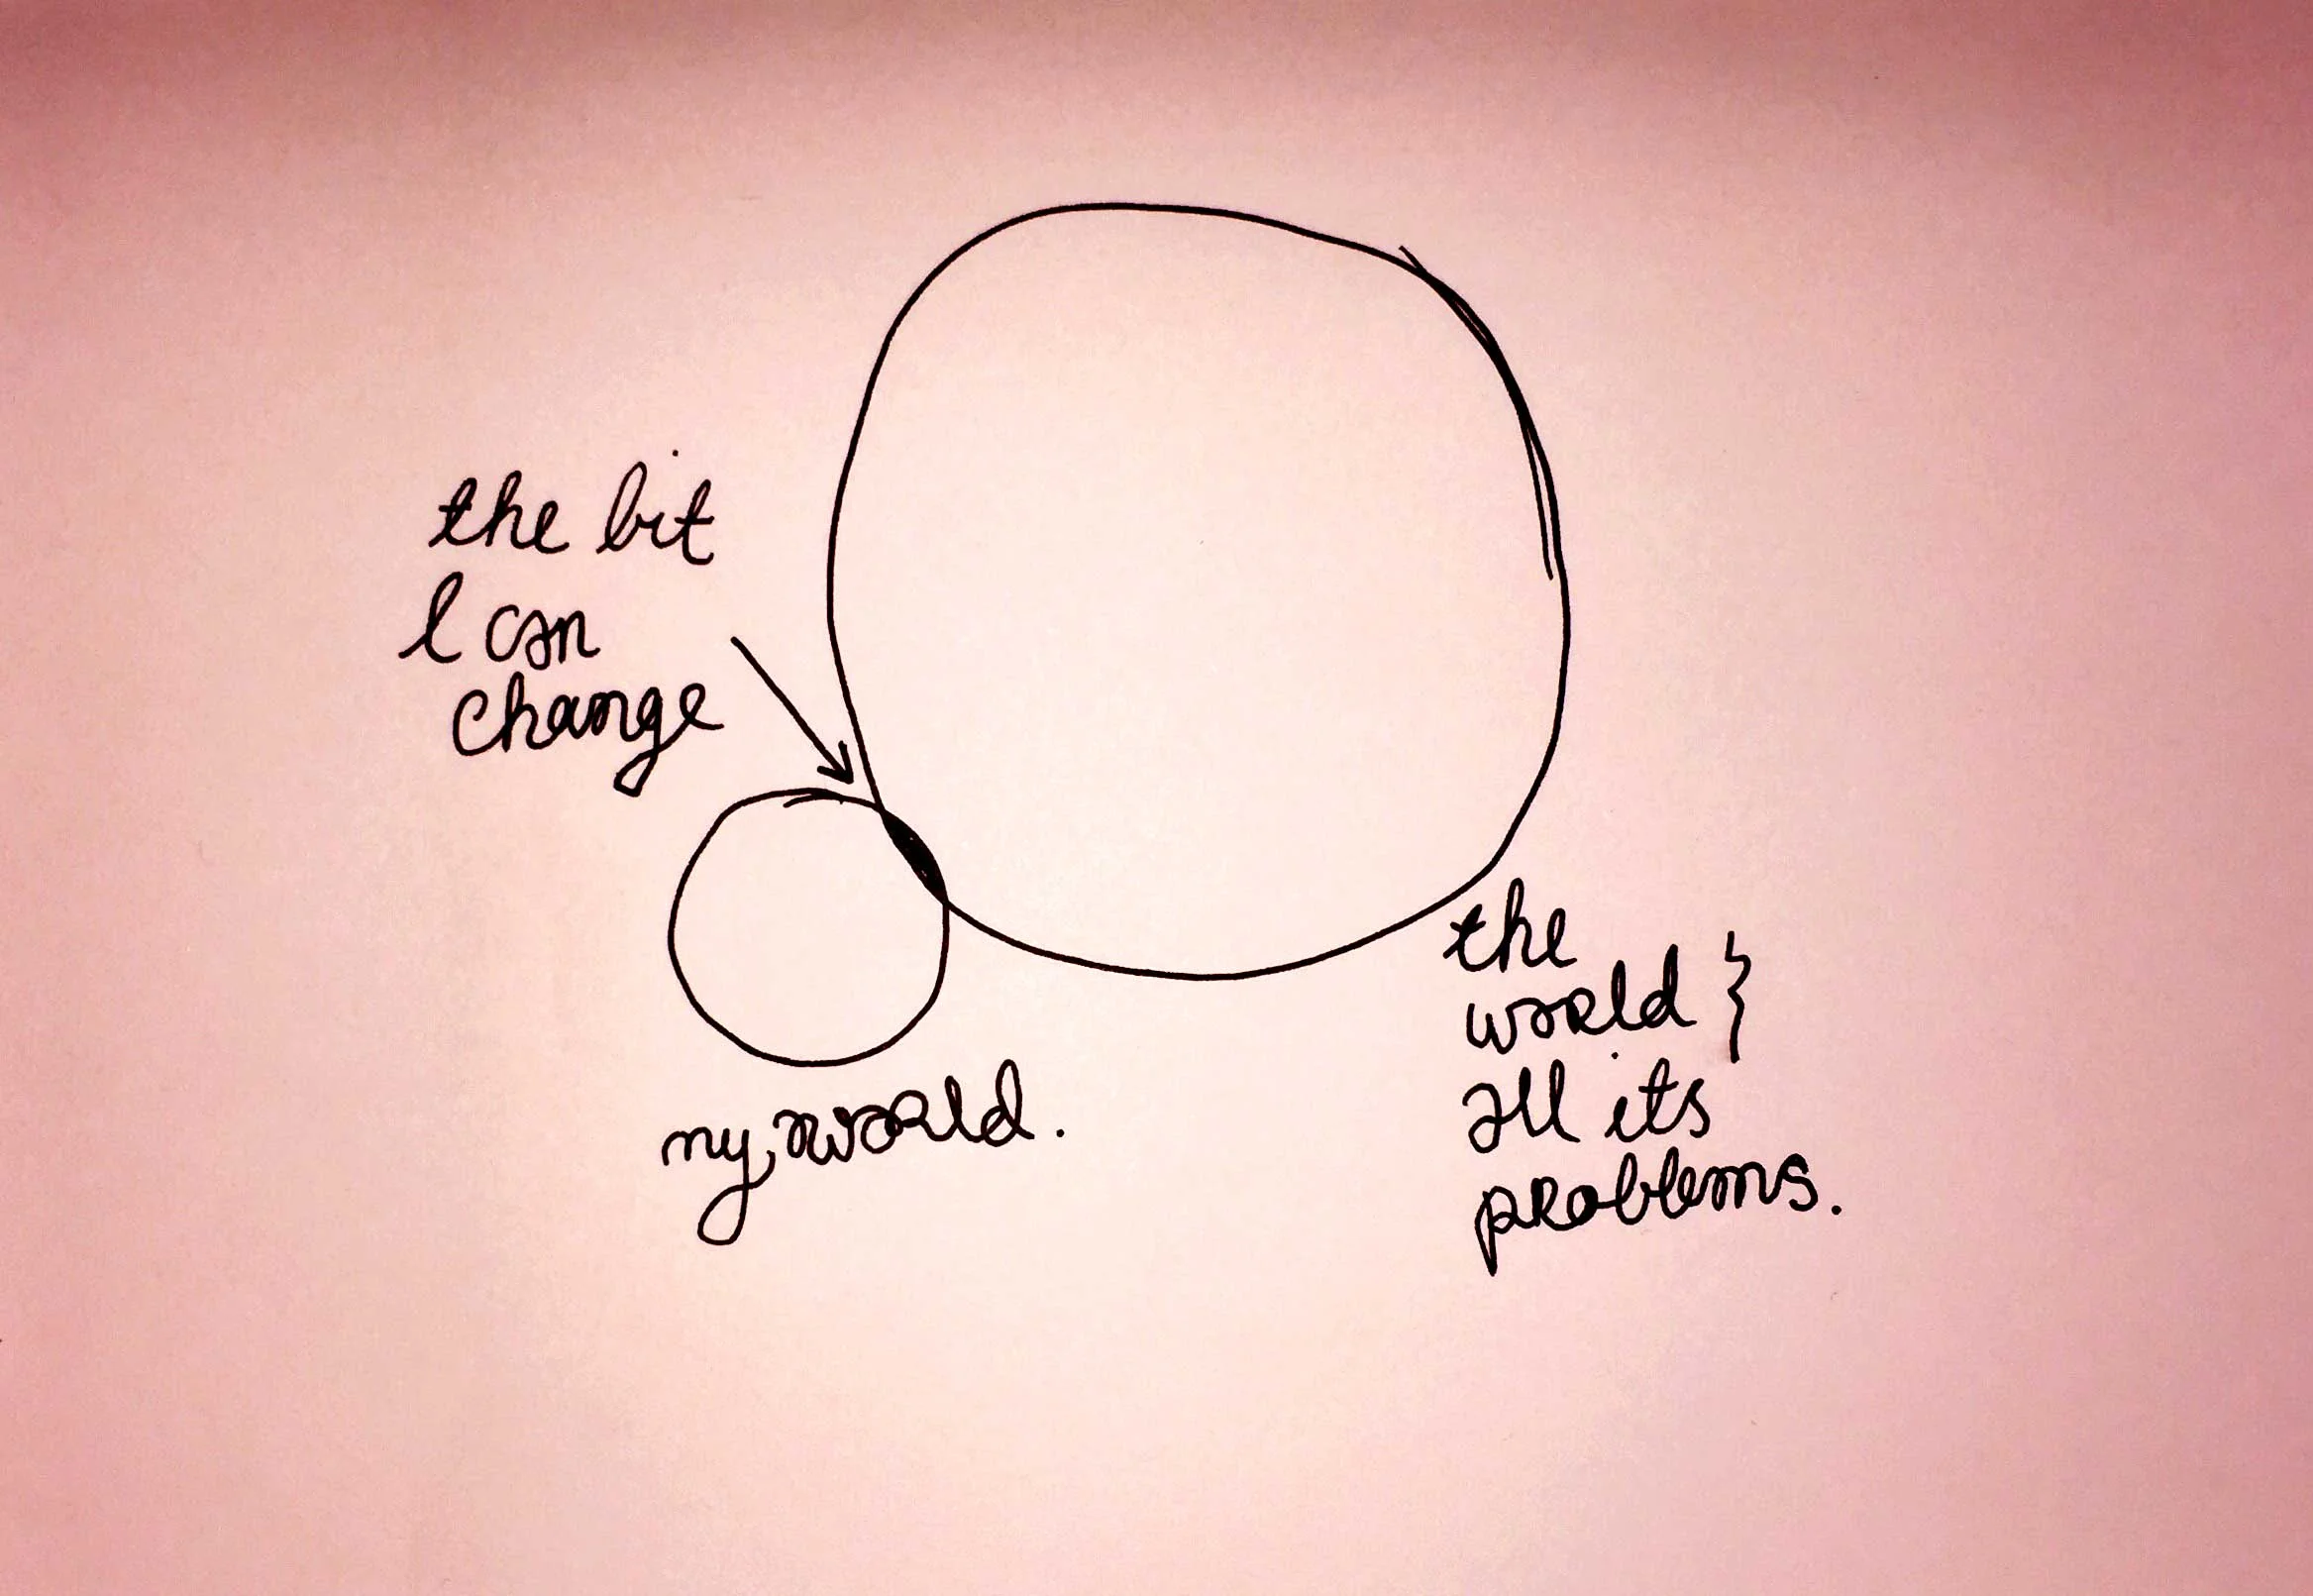 the bit
I can
change
my world.
the
world }
all its
problems.